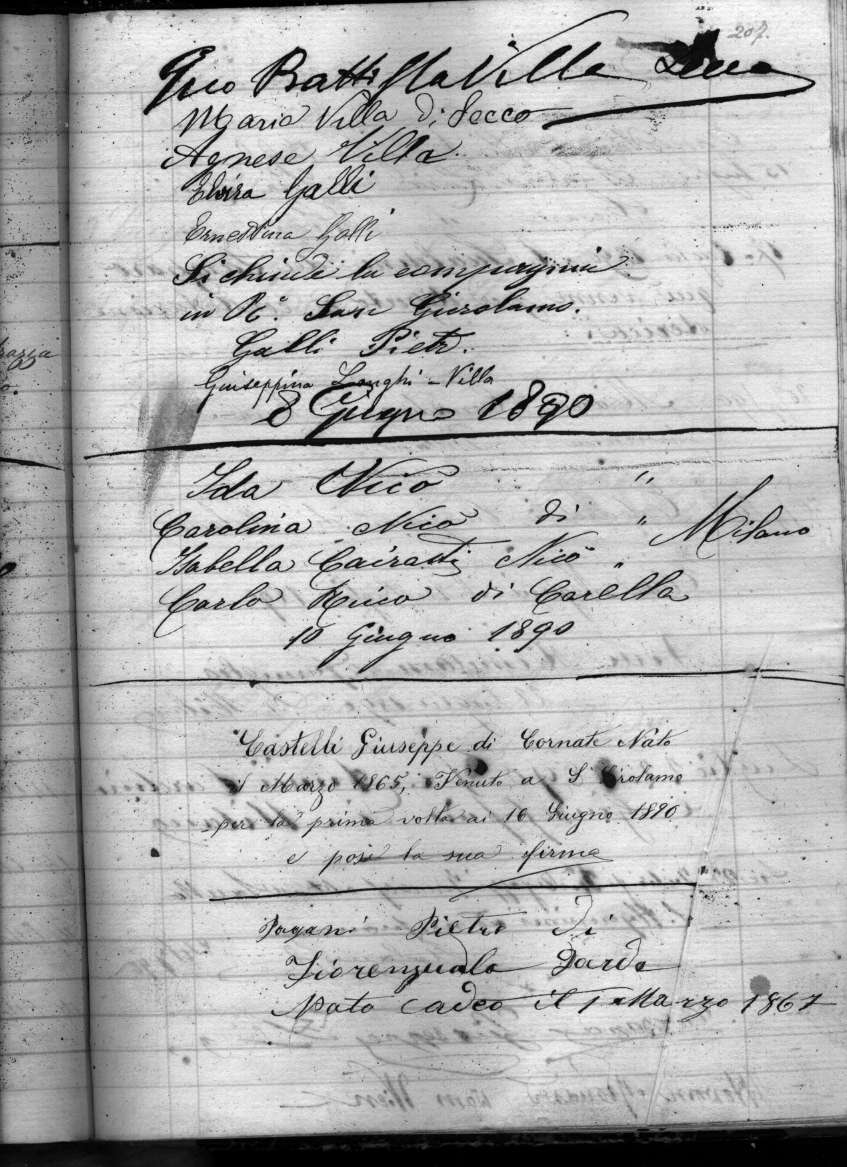 207.
Gio Battista Villa Lecco
Maria Villa di Lecco
Agnese Villa
Elvira Galli
Ernestina Galli
Si chiude la compagnia
in Rº. San Girolamo.
Galli Pietro.
Guiseppina Longhi - Villa
8 Giugno 1890
Ida Nicó "
Carolina Nicó di " Milano
Isabella Nicó "
Carlo di Carella
10 Giugno 1890
Castelli Giuseppe di Cornate Nato
il Marzo 1865, Venuto a S Girolamo
per la prima volta ai 16 Giugno 1890
e pose la sua firma
Pagani Pietro di
Fiorenzuola Darda
Nato il 1 Marzo 1867